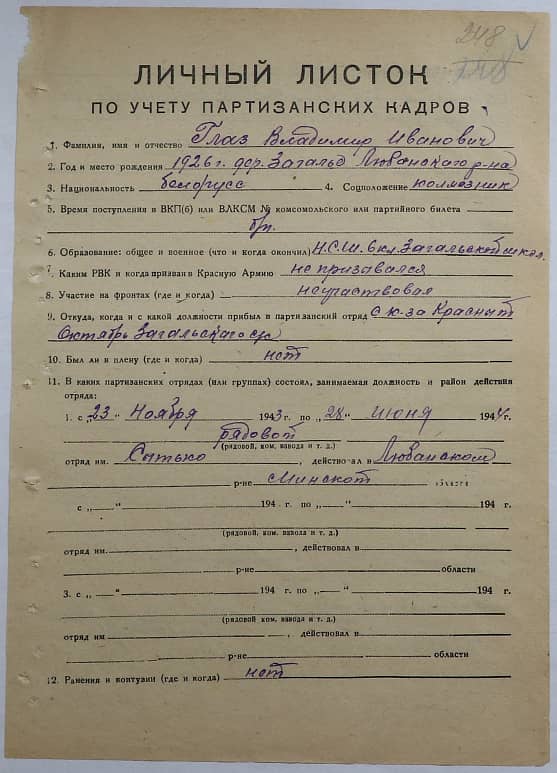 248
248
ЛИЧНЫЙ ЛИСТОК
ПО УЧЕТУ ПАРТИЗАНСКИХ КАДРОВ
1. Фамилия, имя и отчество Глаз Владимир Иванович
2. Год и место рождения 1926 г. дер. Загальд Любанского р-на
3. Национальность белорусс 4. Соцположение колхозник
5. Время поступления в ВКП(б) или ВЛКСМ № комсомольского или партийного билета
б/п.
6. Образование: общее и военное (что и когда окончил) Н.С.Ш. 6 кл. Загальской школ.
7. Каким РВК и когда призван в Красную Армию не призавался
8. Участие на фронтах (где и когда) неучаствовал
9. Откуда, когда и с какой должности прибыл в партизанский отряд с к-за Красный
Октябрь Загальского с/с
10. Был ли в плену (где и когда) нет
11. В каких партизанских отрядах (или группах) состоял, занимаемая должность и район действия
отряда:
1. с „23" Ноября 1943 г. по „28" июня 1944 г.
рядовой
(рядовой, ком. взвода и т. д.)
отряд им. Сытько, действовал в Любанском
р-не Минской области
с „—" 194 г. по „—" 194 г.
(рядовой, ком. взвода и т. д.)
отряд им. , действовал в
р-не области
3. с „—" 194 г. по „—" 194 г.
(рядовой, ком. взвода и т. д.)
отряд им , действовал в
р-не области
12. Ранения и контузии (где и когда) нет